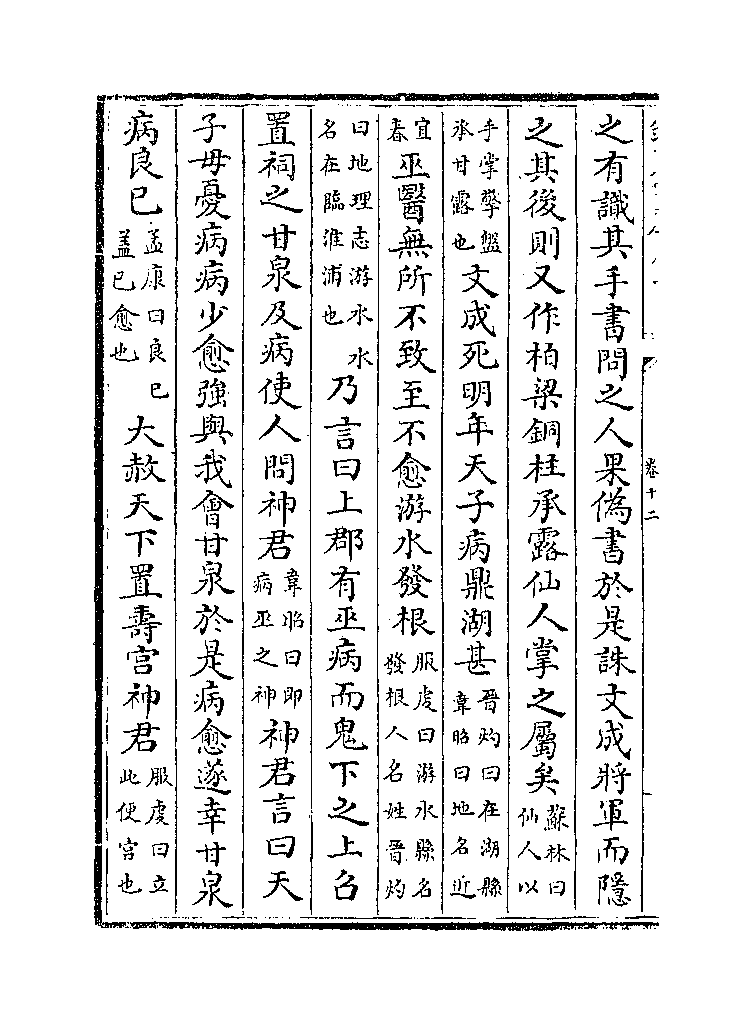 卷十二
之有識其手書問之人果偽書於是誅文成將軍而隱
之其後則又作柏梁銅柱承露仙人掌之屬矣蘇林曰仙人以
手掌擎盤承甘露也文成死明年天子病鼎湖甚晉灼曰在湖縣韋昭曰地名近
宜春巫醫無所不致至不愈游水發根服虔曰游水縣名發根人名姓晉灼
曰地理志游水水名在臨淮浦也乃言曰上郡有巫病而鬼下之上召
置祠之甘泉及病使人問神君韋昭曰即病巫之神神君言曰天
子毋憂病病少愈強與我會甘泉於是病愈遂幸甘泉
病良已孟康曰良已盖已愈也大赦天下置壽宮神君服虔曰立此便宮也